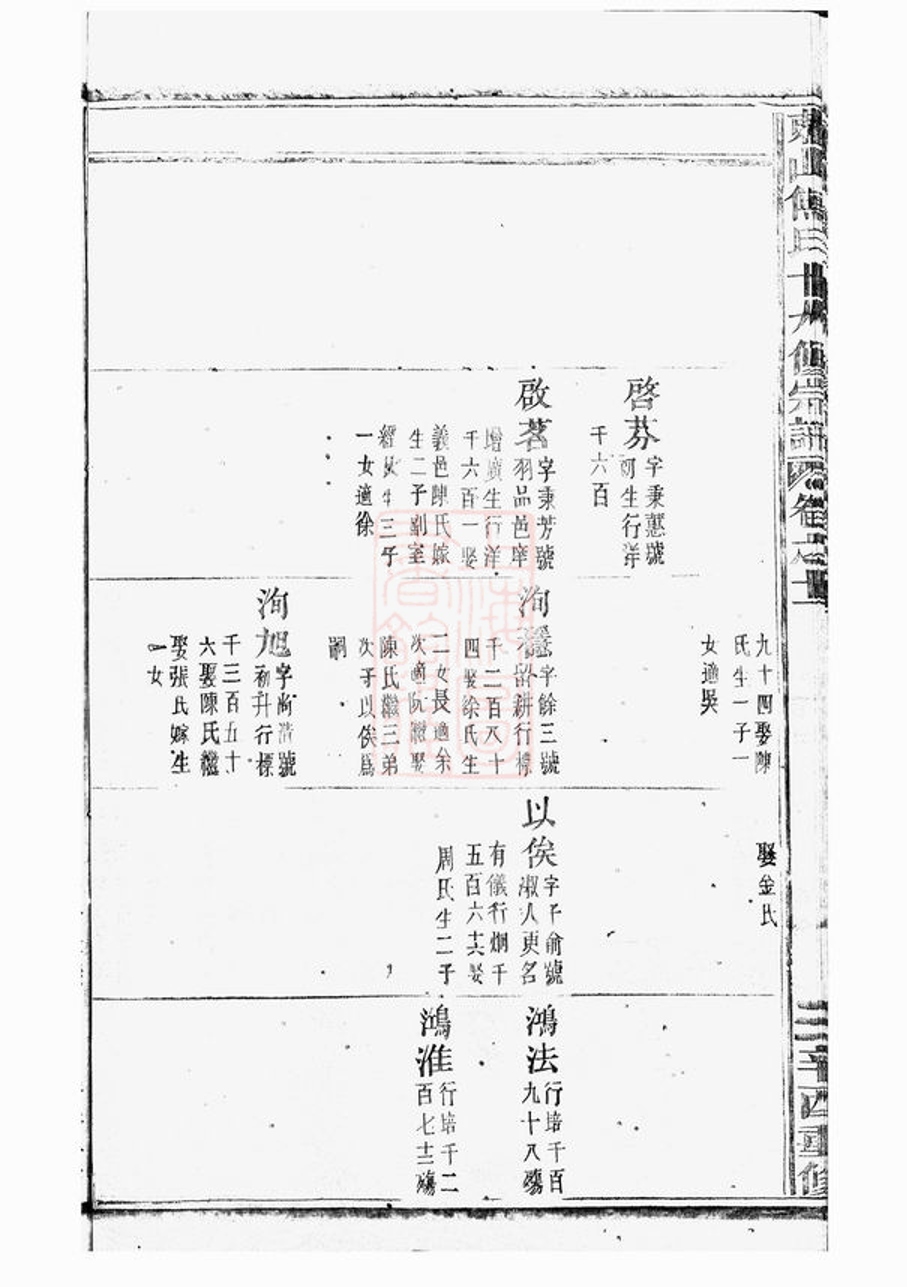 氏十六修宗譜
卷之十二
重修
啓芬
字秉蕙號
初生行洋
千六百
啟茗
字秉芳號
羽品邑庠
增廣生行洋
千六百一娶
義邑陳氏嫁
生二子副室
生三子
一女適徐
九十四娶陳
氏生一子一
女適吳
洵
字餘三號
耕行標
千二百八十
四娶徐氏生
二女長適余
次適阮繼娶
陳氏繼三弟
次子以俟爲
嗣
洵旭
字尚清號
初升行標
千三百五十
六娶陳氏繼
娶張氏嫁生
一女
娶金氏
以俟
字子俞號
淑人更名
有儀行烱千
五百六十六娶
周氏生二子
鴻法
行培千百
九十八殤
鴻淮
行培千二
百七十二殤